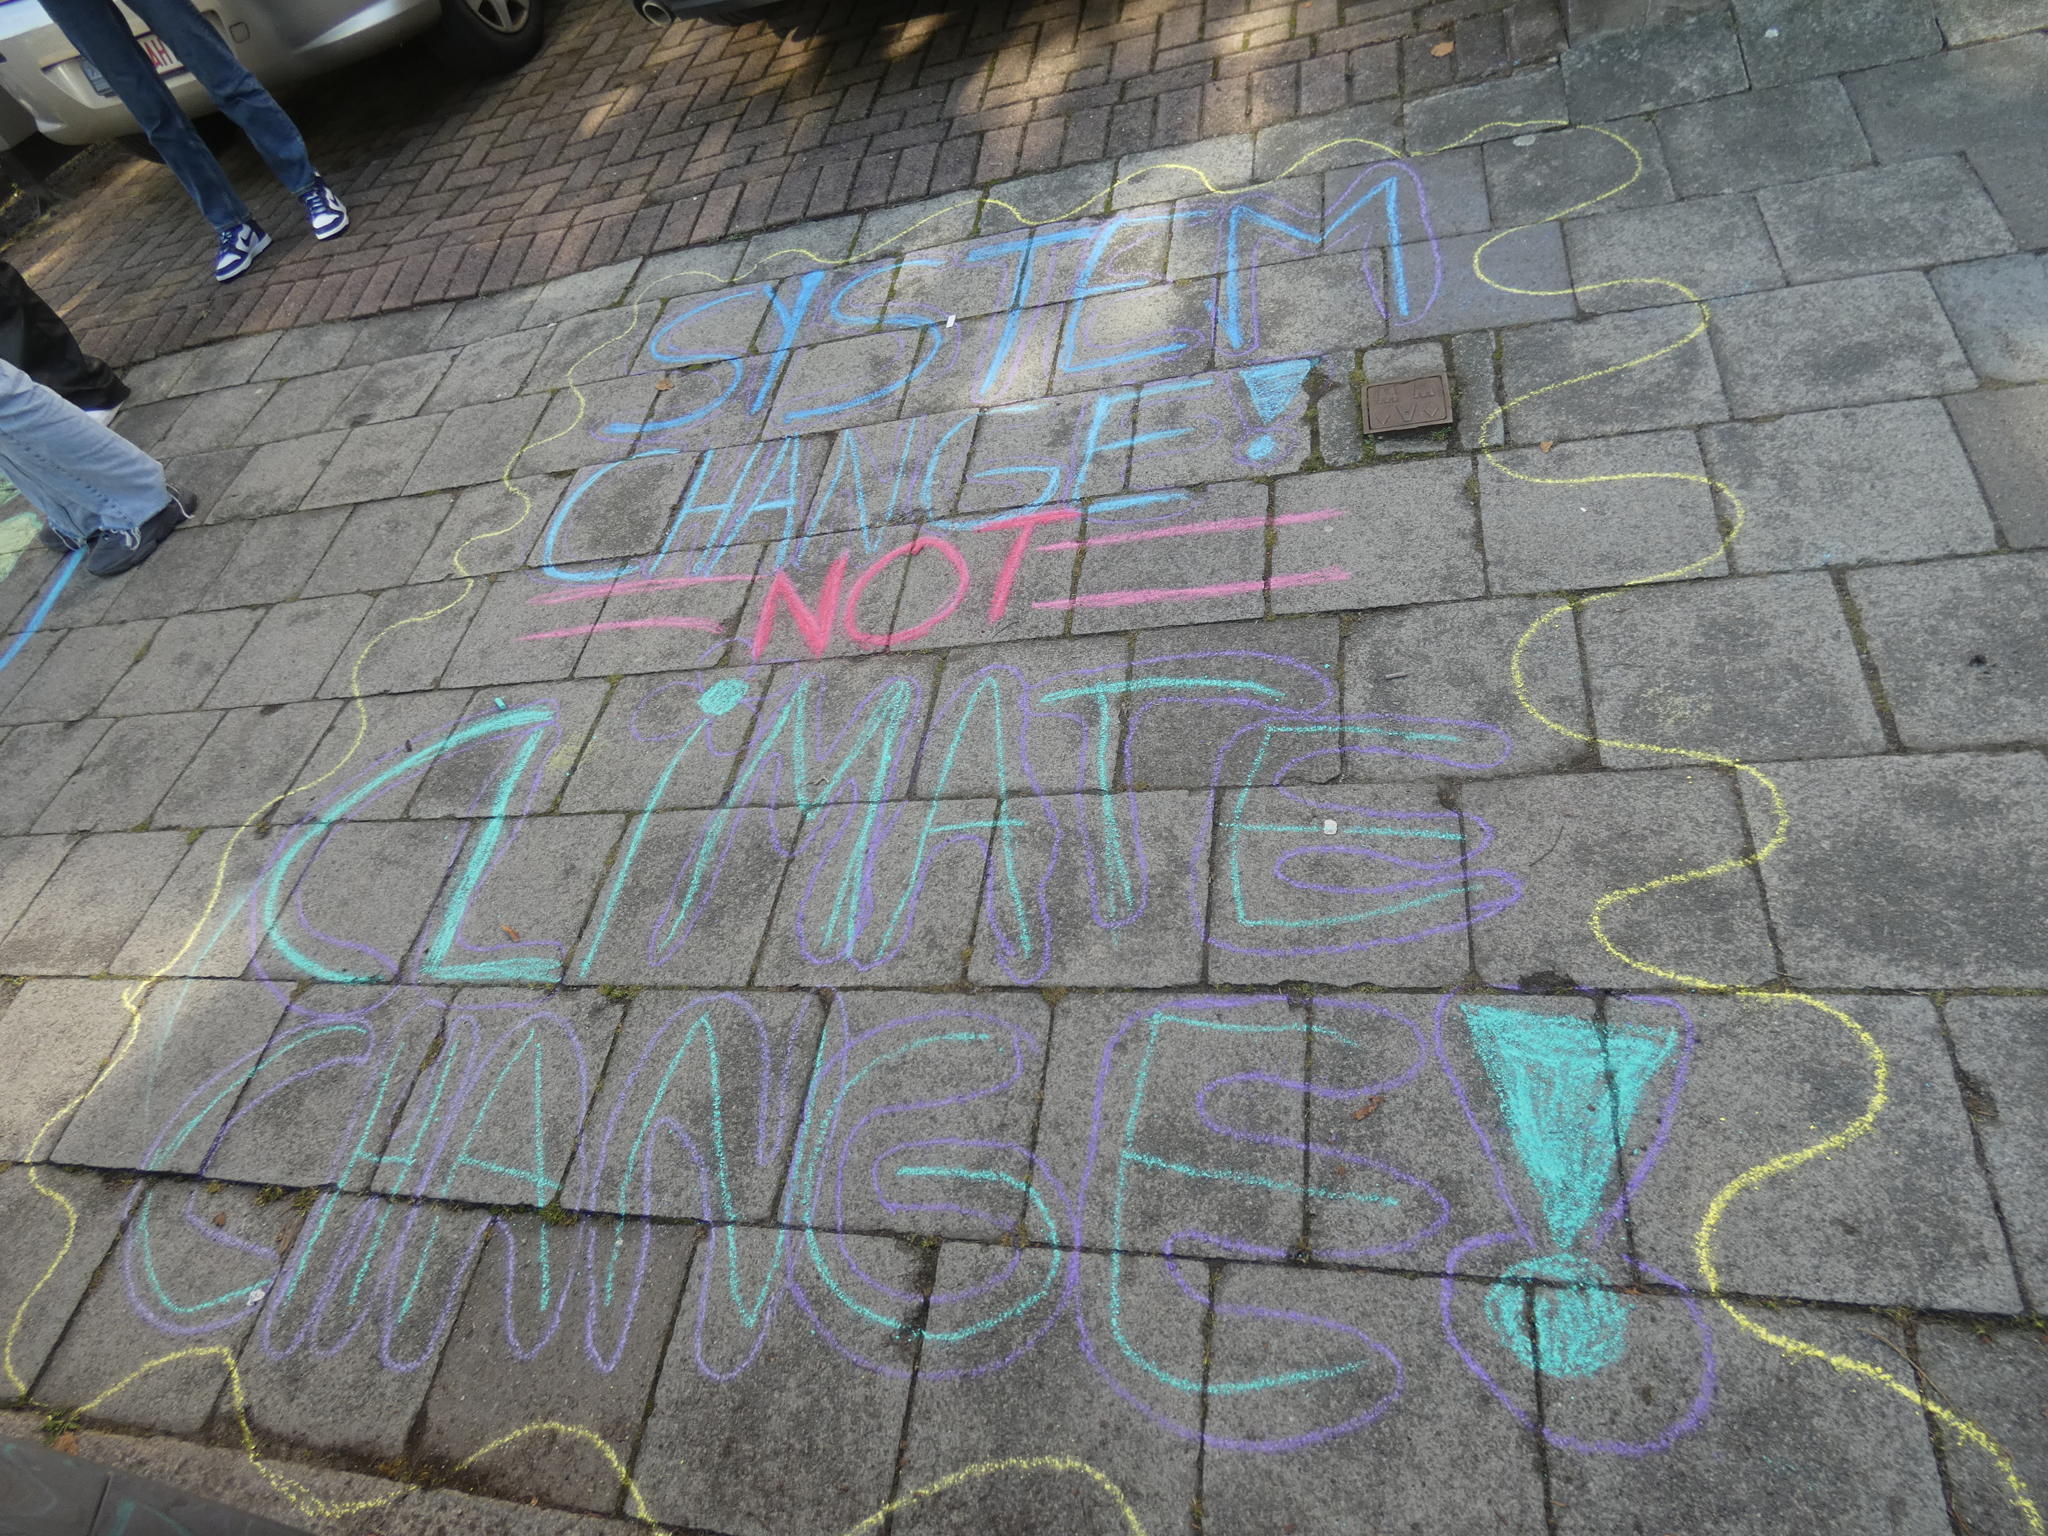 SYSTEM
CHANGE!
NOT
CLiMATE
CHANGE!